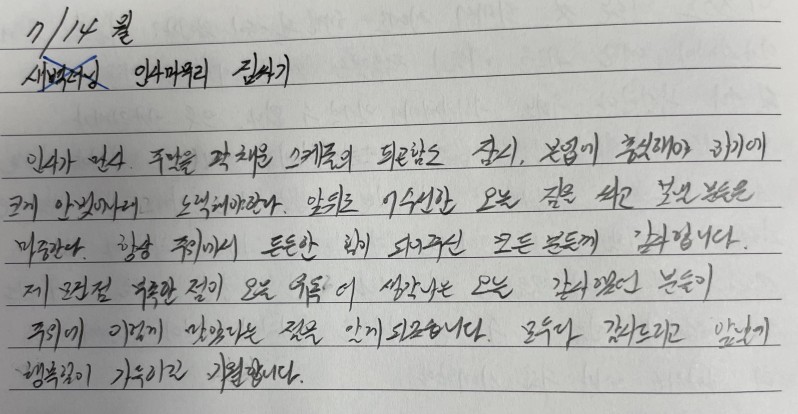 7/14 월
새벽 인사마무리 짐싸기
인사가 만사. 주말을 꽉 채운 스케줄의 피곤함도 잠시, 본업에 충실해야 하기에
크게 안벗어나려 노력해야한다. 앞뒤로 어수선한 오늘 짐을 싸고 보낼 분들은
마중한다. 항상 주위에서 든든한 힘이 되어주신 모든 분들께 감사합니다.
제 모든점 부족한 점이 오늘 유독 더 생각나는 오늘 감사했던 분들이
주위에 이렇게 많았다는 점을 알게되었습니다. 모두다 감사드리고 앞날에
행복길이 가득하길 기원합니다.